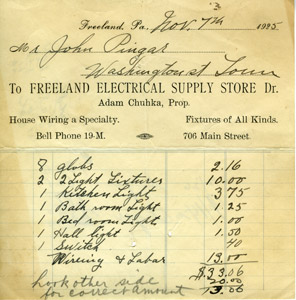 3
Freeland, Pa. Nov. 7th 1925
Mr John Pingar
Washington st Town
To FREELAND ELECTRICAL SUPPLY STORE Dr.
Adam Chuhka, Prop.
House Wiring a Specialty. Fixtures of All Kinds.
Bell Phone 19-M. 706 Main Street.
8 globs 2.16
2 2 Light Fixtures 10.00
1 Kitchen Light 3.75
1 Bath room Light 1.25
1 Bed room Light 1.00
1 Hall light 1.50
1 Switch 40
Wireing & Labar 13.00
$33.06
look other side 20.00
for correct amount 13.06